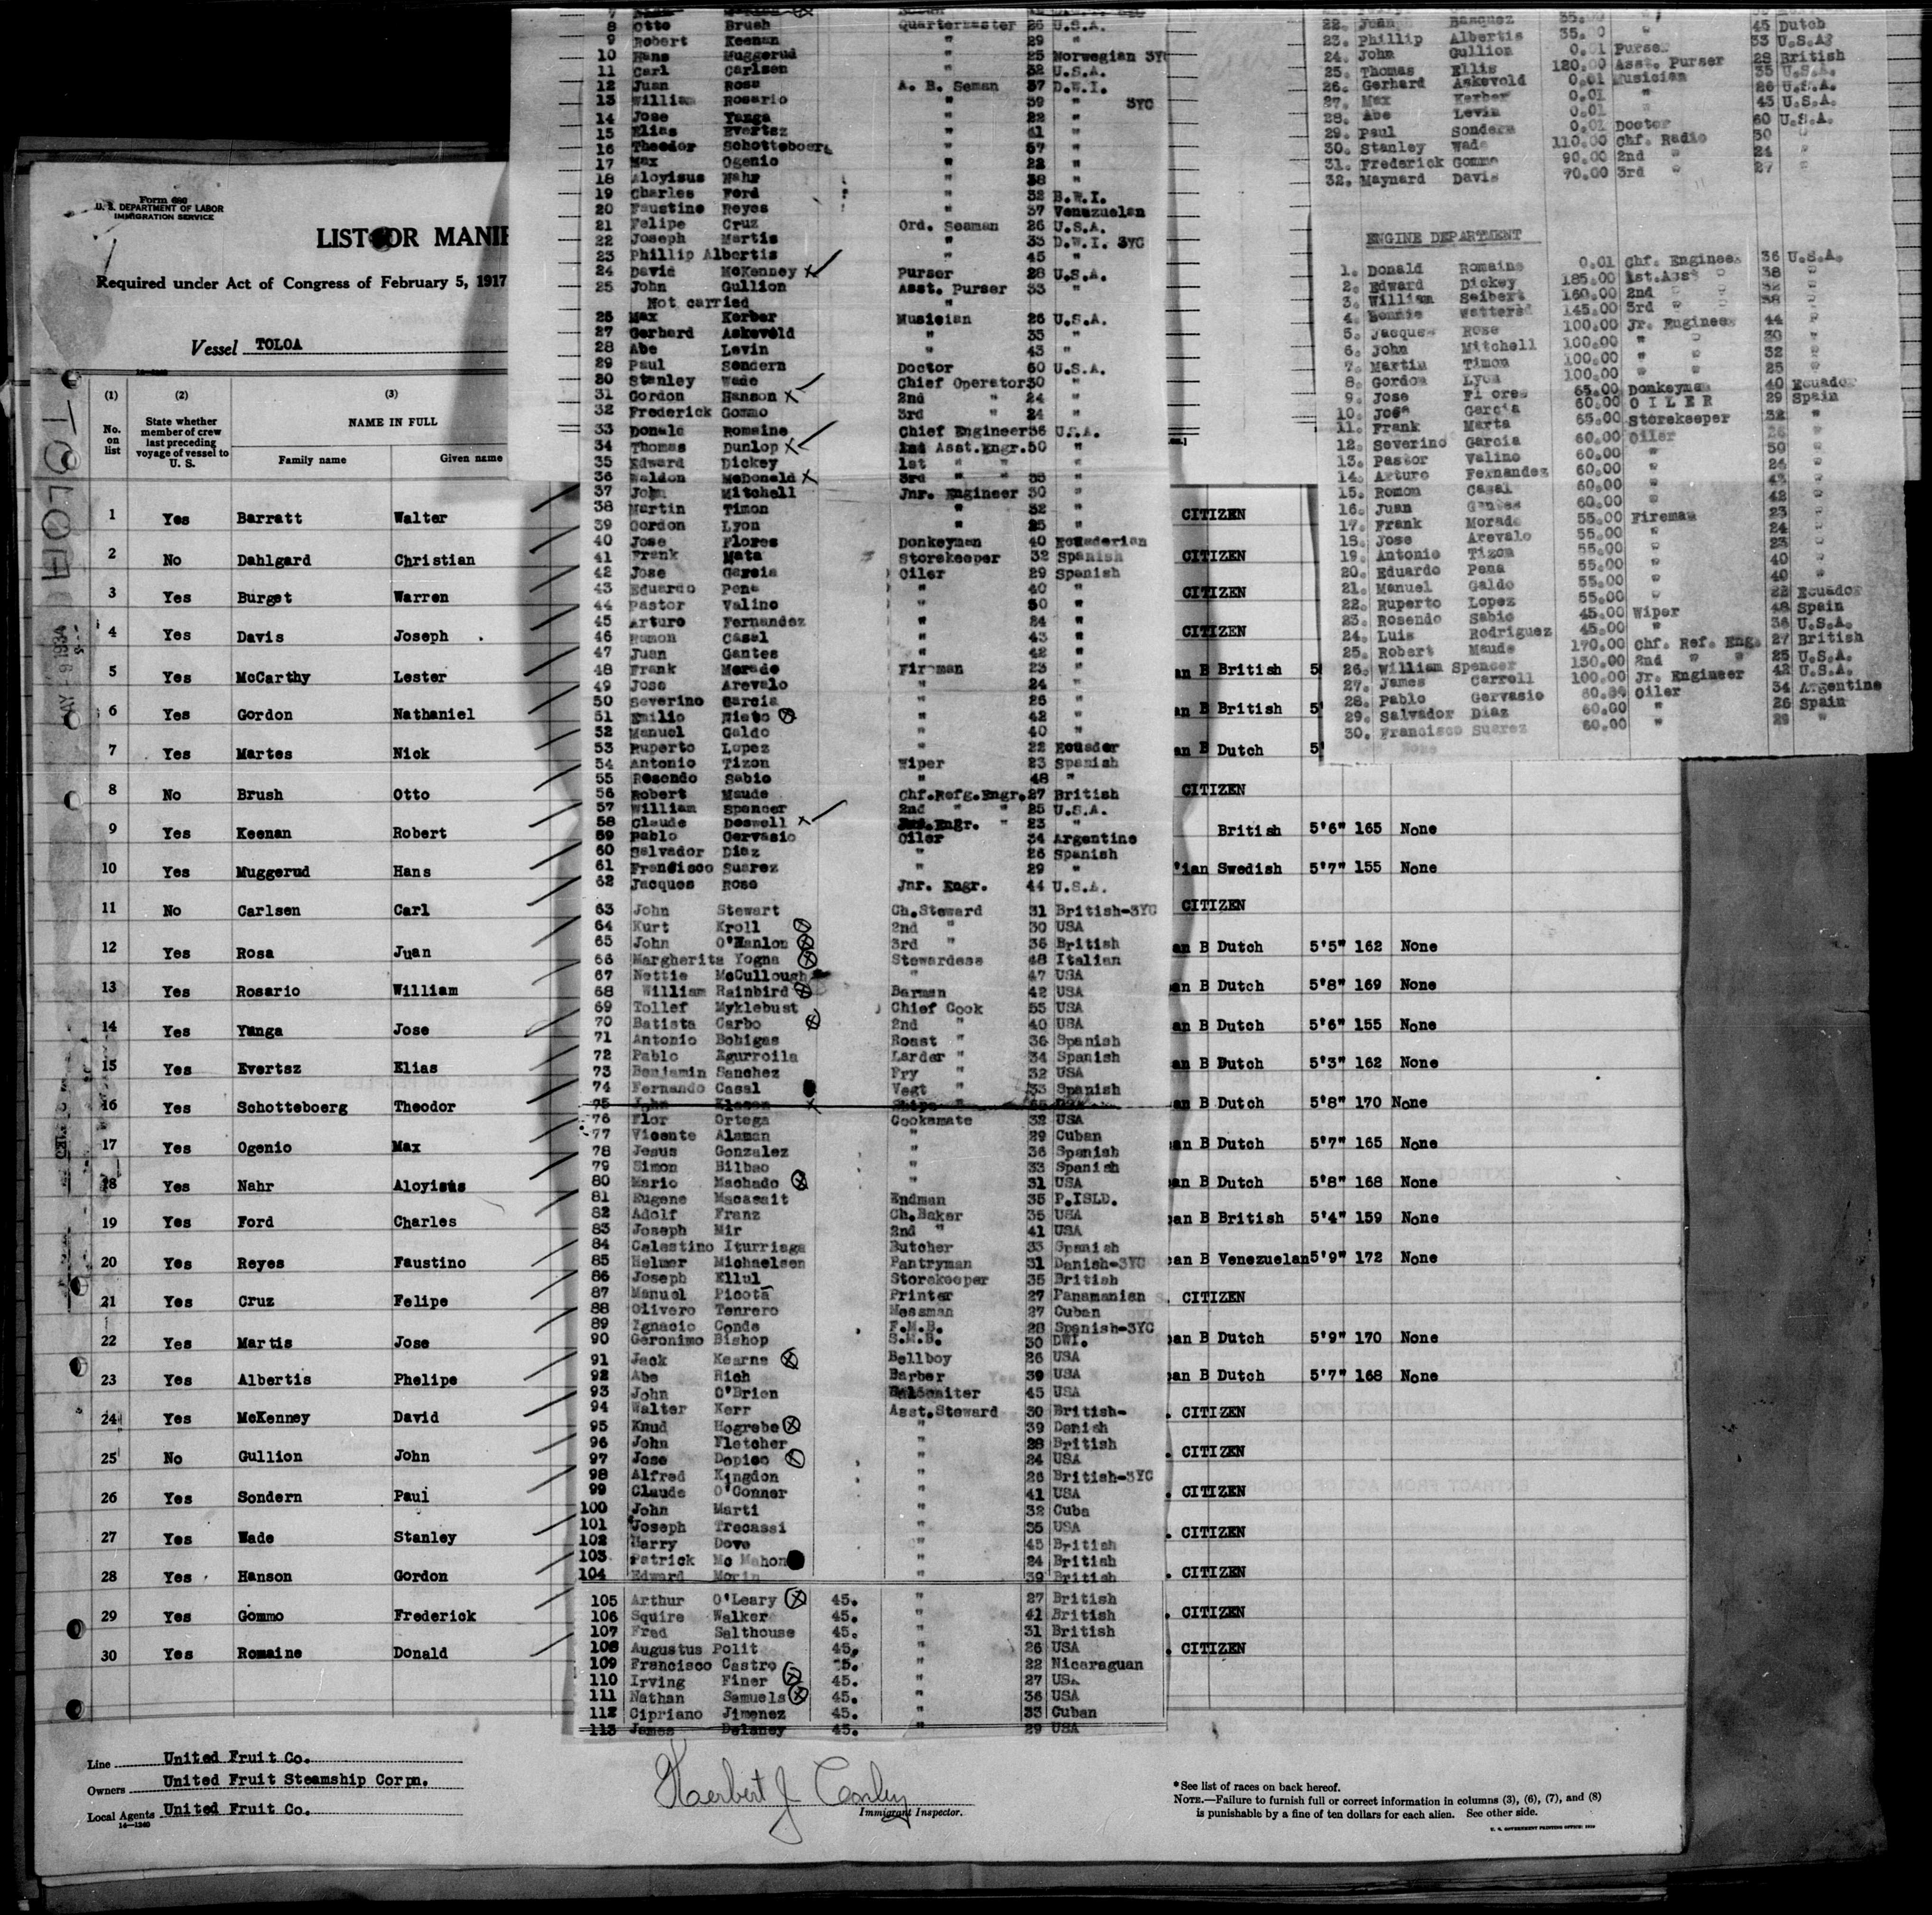 Form 680
U. S. DEPARTMENT OF LABOR
IMMIGRATION SERVICE
LIST OR MANIF
Required under Act of Congress of February 5, 1917
Vessel TOLOA
(1) (2) (3)
No. on list
State whether member of crew last preceding voyage of vessel to U. S.
NAME IN FULL
Family name Given name
1 Yes Barratt Walter
2 No Dahlgard Christian
3 Yes Burget Warren
4 Yes Davis Joseph
5 Yes McCarthy Lester
6 Yes Gordon Nathaniel
7 Yes Martes Nick
8 No Brush Otto
9 Yes Keenan Robert
10 Yes Muggerud Hans
11 No Carlsen Carl
12 Yes Rosa Juan
13 Yes Rosario William
14 Yes Yanga Jose
15 Yes Evertsz Elias
16 Yes Schotteboerg Theodor
17 Yes Ogenio Max
18 Yes Nahr Aloyisus
19 Yes Ford Charles
20 Yes Reyes Faustino
21 Yes Cruz Felipe
22 Yes Martis Jose
23 Yes Albertis Phelipe
24 Yes McKenney David
25 No Gullion John
26 Yes Sondern Paul
27 Yes Wade Stanley
28 Yes Hanson Gordon
29 Yes Gommo Frederick
30 Yes Romaine Donald
Line United Fruit Co.
Owners United Fruit Steamship Corpn.
Local Agents United Fruit Co.
14—1240
8 Otto Brush Quartermaster 26 U.S.A.
9 Robert Keenan " 29 "
10 Hans Muggerud " 25 Norwegian 3YC
11 Carl Carlsen " 32 U.S.A.
12 Juan Rosa A. B. Seman 37 D.W.I.
13 William Rosario " 39 " 3YC
14 Jose Yanga " 22 "
15 Elias Evertsz " 41 "
16 Theodor Schotteboerg " 57 "
17 Max Ogenio " 22 "
18 Aloyisus Nahr " 38 "
19 Charles Ford " 32 B.W.I.
20 Faustino Reyes " 37 Venezuelan
21 Felipe Cruz Ord. Seaman 26 U.S.A.
22 Joseph Martis " 33 D.W.I. 3YC
23 Phillip Albertis " 45 "
24 David McKenney x Purser 28 U.S.A.
25 John Gullion Asst. Purser 33 "
Not carried "
26 Max Kerber Musician 26 U.S.A.
27 Gerhard Askevold " 35 "
28 Abe Levin " 43 "
29 Paul Sondern Doctor 60 U.S.A.
30 Stanley Wade Chief Operator 30 "
31 Gordon Hanson x 2nd " 24 "
32 Frederick Gommo 3rd " 24 "
33 Donald Romaine Chief Engineer 36 U.S.A.
34 Thomas Dunlop x 2nd Asst.Engr. 50 "
35 Edward Dickey 1st " " "
36 Waldon McDonald x 3rd " " 35 "
37 John Mitchell Jnr. Engineer 30 "
38 Martin Timon " 32 "
39 Gordon Lyon " 25 "
40 Jose Flores Donkeyman 40 Ecuaderian
41 Frank Mata Storekeeper 32 Spanish
42 Jose Garcia Oiler 29 Spanish
43 Eduardo Pena " 40 "
44 Pastor Valino " 50 "
45 Arturo Fernandez " 24 "
46 Ramon Casal " 43 "
47 Juan Gantes " 42 "
48 Frank Morado Firman 23 "
49 Jose Arevalo " 24 "
50 Severino Garcia " 26 "
51 Emilio Nieto " 42 "
52 Manuel Galdo " 40 "
53 Ruperto Lopez " 22 Ecuador
54 Antonio Tizon Wiper 23 Spanish
55 Rosendo Sabio " 48 "
56 Robert Maude Chf.Refg.Engr. 27 British
57 William Spencer 2nd " " 25 U.S.A.
58 Claude Doswell x Engr. " 23 "
59 Pablo Gervasio Oiler 34 Argentine
60 Salvador Diaz " 26 Spanish
61 Francisco Suarez " 29 "
62 Jacques Rose Jnr. Engr. 44 U.S.A.
63 John Stewart Ch.Steward 31 British-3YC
64 Kurt Kroll 2nd " 30 USA
65 John O'Hanlon 3rd " 36 British
66 Margherita Yogna Stewardess 48 Italian
67 Nettie McCullough " 47 USA
68 William Rainbird Barman 42 USA
69 Tollef Myklebust Chief Cook 55 USA
70 Batista Carbo 2nd " 40 USA
71 Antonio Bohigas Roast " 36 Spanish
72 Pablo Egurroila Larder " 34 Spanish
73 Benjamin Sanchez Fry " 32 USA
74 Fernando Casal Vegt " 33 Spanish
75 John
76 Flor Ortega Cooksmate 32 USA
77 Vicente Alaman " 29 Cuban
78 Jesus Gonzalez " 36 Spanish
79 Simon Bilbao " 33 Spanish
80 Mario Machado " 31 USA
81 Eugene Macasait Endman 35 P.ISLD.
82 Adolf Franz Ch.Baker 35 USA
83 Joseph Mir 2nd " 41 USA
84 Celestino Iturriaga Butcher 33 Spanish
85 Helmer Michaelsen Pantryman 31 Danish-3YC
86 Joseph Ellul Storekeeper 35 British
87 Manuel Picota Printer 27 Panamanian
88 Olivero Tenrero Messman 27 Cuban
89 Ignacio Conde F.M.B. 28 Spanish-3YC
90 Geronimo Bishop S.M.B. 30 DWI.
91 Jack Kearns Bellboy 26 USA
92 Abe Rich Barber 39 USA
93 John O'Brien 45 USA
94 Walter Kerr Asst.Steward 30 British-
95 Knud Hogrebe " 39 Danish
96 John Fletcher " 28 British
97 Jose Dopico " 24 USA
98 Alfred Kingdon " 26 British-3YC
99 Claude O'Conner " 41 USA
100 John Marti " 32 Cuba
101 Joseph Trecassi " 35 USA
102 Harry Dove " 45 British
103 Patrick Mc Mahon " 24 British
104 Edward Morin " 39 British
105 Arthur O'Leary 45. " 27 British
106 Squire Walker 45. " 41 British
107 Fred Salthouse 45. " 31 British
108 Augustus Polit 45. " 26 USA
109 Francisco Castro 5. " 22 Nicaraguan
110 Irving Finer 45. " 27 USA
111 Nathan Samuels 45. " 36 USA
112 Cipriano Jimenez 45. " 33 Cuban
113 James Delaney 45. " 29 USA
Herbert J. Conley
Immigrant Inspector.
22. Juan Basquez 35.00 " 45 Dutch
23. Phillip Albertis 35.00 " 33 U.S.A.
24. John Gullion 0.01 Purser 28 British
25. Thomas Ellis 120.00 Asst. Purser 35 U.S.A.
26. Gerhard Askevold 0.01 Musician 26 U.S.A.
27. Max Kerber 0.01 " 43 U.S.A.
28. Abe Levin 0.01 " 60 U.S.A.
29. Paul Sondern 0.01 Doctor 30 "
30. Stanley Wade 110.00 Chf. Radio 24 "
31. Frederick Gommo 90.00 2nd " 27 "
32. Maynard Davis 70.00 3rd "
ENGINE DEPARTMENT
1. Donald Romaine 0.01 Chf. Engineer 36 U.S.A.
2. Edward Dickey 185.00 1st.Asst " 38 "
3. William Seibert 160.00 2nd " " 32 "
4. Watters 145.00 3rd " " 38 "
5. Jacques Rose 100.00 Jr. Engineer 44 "
6. John Mitchell 100.00 " " 30 "
7. Martin Timon 100.00 " " 32 "
8. Gordon Lyon 100.00 " " 25 "
9. Jose Flores 65.00 Donkeyman 40 Ecuador
10. Jose Garcia 60.00 OILER 29 Spain
11. Frank Marta 65.00 Storekeeper 32 "
12. Severino Garcia 60.00 Oiler 26 "
13. Pastor Valino 60.00 " 50 "
14. Arturo Fernandez 60.00 " 24 "
15. Romon Casal 60.00 " 43 "
16. Juan Gantes 60.00 " 42 "
17. Frank Morado 55.00 Fireman 23 "
18. Jose Arevalo 55.00 " 24 "
19. Antonio Tizon 55.00 " 23 "
20. Eduardo Pena 55.00 " 40 "
21. Manuel Galdo 55.00 " 40 "
22. Ruperto Lopez 55.00 " 22 Ecuador
23. Rosendo Sabio 45.00 Wiper 48 Spain
24. Luis Rodriguez 45.00 " 36 U.S.A.
25. Robert Maude 170.00 Chf. Ref. Eng. 27 British
26. William Spencer 130.00 2nd " " 25 U.S.A.
27. James Carroll 100.00 Jr. Engineer 42 U.S.A.
28. Pablo Gervasio 60.00 Oiler 34 Argentine
29. Salvador Diaz 60.00 " 26 Spain
30. Francisco Suarez 60.00 " 29 "
CITIZEN
CITIZEN
CITIZEN
CITIZEN
an B British 5
an B British 5'
an B Dutch 5
CITIZEN
British 5'6" 165 None
'ian Swedish 5'7" 155 None
CITIZEN
an B Dutch 5'5" 162 None
an B Dutch 5'8" 169 None
an B Dutch 5'6" 155 None
an B Dutch 5'3" 162 None
an B Dutch 5'8" 170 None
an B Dutch 5'7" 165 None
an B Dutch 5'8" 168 None
an B British 5'4" 159 None
an B Venezuelan 5'9" 172 None
CITIZEN
an B Dutch 5'9" 170 None
an B Dutch 5'7" 168 None
. CITIZEN
. CITIZEN
. CITIZEN
. CITIZEN
. CITIZEN
. CITIZEN
. CITIZEN
* See list of races on back hereof.
NOTE.—Failure to furnish full or correct information in columns (3), (6), (7), and (8)
is punishable by a fine of ten dollars for each alien. See other side.
TOLOA
MAY -9 1934